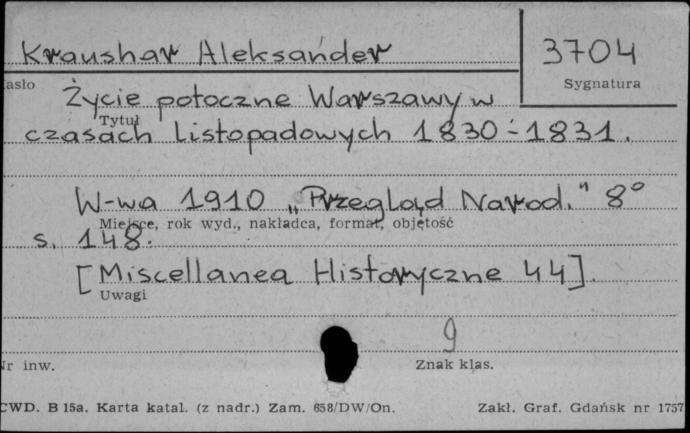 Kraushar Aleksander
3704
asło
Sygnatura
Życie potoczne Warszawy w
Tytuł
czasach listopadowych 1830-1831.
W-wa 1910 „Przegląd Narod." 8°
Miejsce, rok wyd., nakładca, format, objętość
s. 148.
[Miscellanea Historyczne 44].
Uwagi
9
Nr inw.
Znak klas.
CWD. B 15a. Karta katal. (z nadr.) Zam. 658/DW/On.
Zakł. Graf. Gdańsk nr 1757